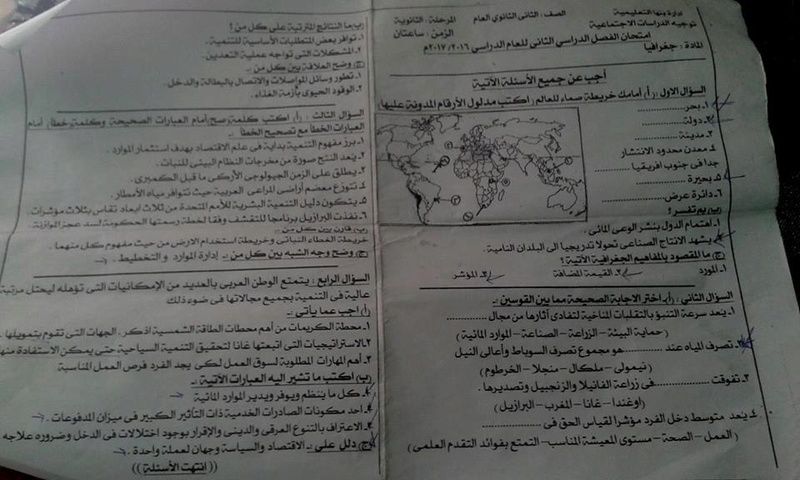 إدارة بنها التعليمية
توجيه الدراسات الاجتماعية
المادة : جغرافيا
الصف : الثانى الثانوى العام
المرحلة : الثانوية
الزمن : ساعتان
امتحان الفصل الدراسي الثانى للعام الدراسي ٢٠١٦/ ٢٠١٧م
أجب عن جميع الأسئلة الآتية
السؤال الاول : (أ) أمامك خريطة صماء للعالم ( اكتب مدلول الأرقام المدونة عليها)
١. بحر
٢. دولة
٣. مدينة
٤. معدن محدود الانتشار
جدا فى جنوب افريقيا
٥. بحيرة
٦. دائرة عرض
(ب) بم تفسر ؟
١. اهتمام الدول بنشر الوعى المائى .
٢. يشهد الانتاج الصناعى تحولا تدريجيا الى البلدان النامية .
(ج) ما المقصود بالمفاهيم الجغرافية الآتية ؟
١. المورد ٢. القيمة المضافة ٣. المؤشر
السؤال الثانى : (أ) - اختر الاجابة الصحيحة مما بين القوسين :-
١. يعد سرعة التنبؤ بالتقلبات المناخية لتفادى آثارها من مجال ............
(حماية البيئة – الزراعة – الصناعة – الموارد المائية )
٢. تصرف المياه عند ............هو مجموع تصرف السوباط وأعالى النيل
(نيمولى – ملكال – منجلا – الخرطوم)
٣. تفوقت ............ فى زراعة الفانيلا والزنجبيل وتصديرها .
(اوغندا – غانا – المغرب – البرازيل)
٤. يعد متوسط دخل الفرد مؤشرا لقياس الحق فى ............
(العمل – الصحة – مستوى المعيشة المناسب – التمتع بفوائد التقدم العلمى)
(ب) ما النتائج المترتبة على كل من ؟
١. توافر بعض المتطلبات الأساسية للتنمية .
٢. المشكلات التى تواجه عملية التعدين .
(ج) وضح العلاقة بين كل من .
١. تطور وسائل المواصلات والاتصال بالبطالة والدخل.
٢. الوقود الحيوى بأزمة الغذاء .
السؤال الثالث : (أ) اكتب كلمة صح أمام العبارات الصحيحة وكلمة خطأ أمام
العبارات الخطأ مع تصحيح الخطأ .
١. برز مفهوم التنمية بداية فى علم الاقتصاد بهدف استثمار الموارد .
٢. يعد النتح صورة من مخرجات النظام البيئى للنبات .
٣. يطلق على الزمن الجيولوجى الأركى ما قبل الكمبرى .
٤. تتوزع معظم أراضى المراعى العربية حيث تتوافر مياه الأمطار .
٥. يتكون دليل التنمية البشرية للأمم المتحدة من ثلاث ابعاد تقاس بثلاث مؤشرات .
٦. نفذت البرازيل برنامجا للتقشف وفقا لخطة رسمتها الحكومة لسد عجز الموازنة .
(ب) قارن بين كل من :-
خريطة الغطاء النباتى وخريطة استخدام الارض من حيث مفهوم كل منهما .
(ج) وضح وجه الشبه بين كل من :- إدارة الموارد و التخطيط .
السؤال الرابع : يتمتع الوطن العربى بالعديد من الإمكانيات التى تؤهله ليحتل مرتبة
عالية فى التنمية بجميع مجالاتها فى ضوء ذلك
(أ) أجب عما يأتى :-
١. محطة الكريمات من أهم محطات الطاقة الشمسية اذكر . الجهات التى تقوم بتمويلها .
٢. الاستراتيجيات التى اتبعتها غانا لتحقيق التنمية السياحية حتى يمكن الاستفادة منها
٣. أهم المهارات المطلوبة لسوق العمل لكى يجد الفرد فرص العمل المناسبة
(ب) اكتب ما تشير اليه العبارات الآتية :-
١. كل ما ينظم ويوفر ويدير الموارد المائية
٢. احد مكونات الصادرات الخدمية ذات التأثير الكبير فى ميزان المدفوعات .
٣. الاعتراف بالتنوع العرقى والدينى والإقرار بوجود اختلالات فى الدخل وضروره علاجه
(ج) دلل على :- الاقتصاد والسياسة وجهان لعملة واحدة .
(( انتهت الأسئلة ))